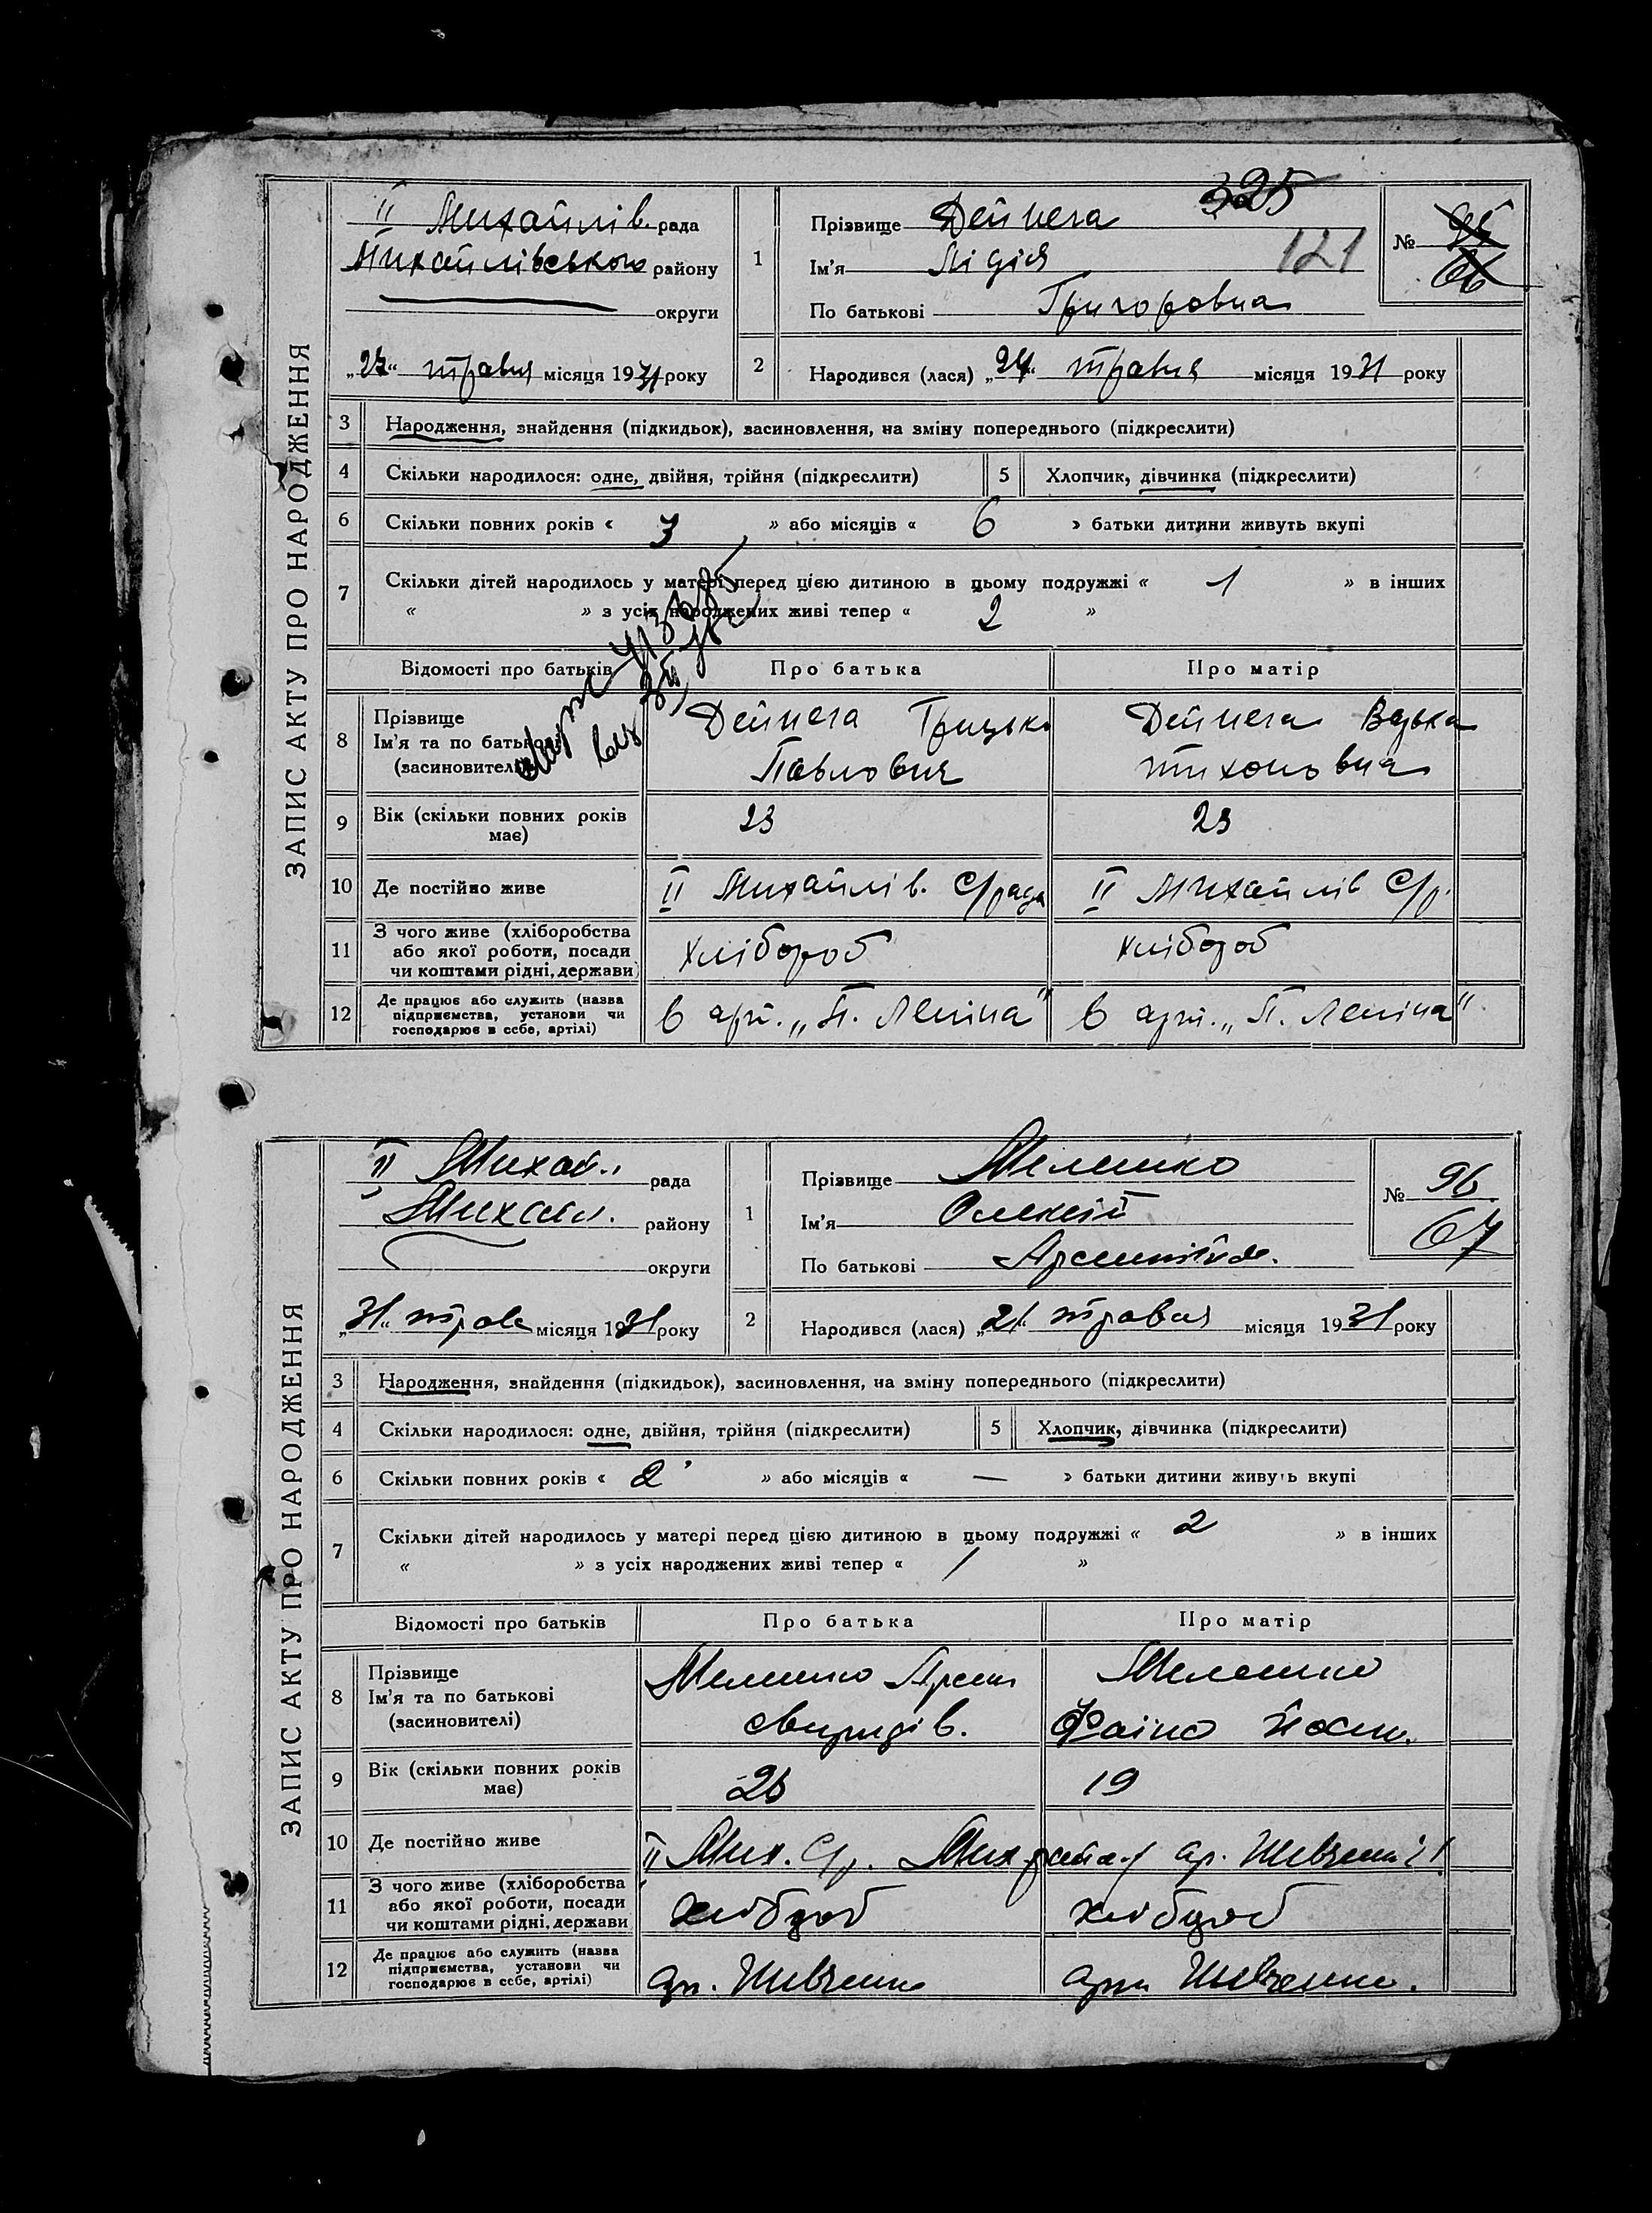 325
ЗАПИС АКТУ ПРО НАРОДЖЕННЯ
II Михайлів. рада
Михайлівського району
округи
„27“ травня місяця 1931 року
1
Прізвище Дейнега
Ім'я Лідія 121
По батькові Григоровна
№ 95
66
2 Народився (лася) „24“ травня місяця 1931 року
3 Народження, знайдення (підкидьок), засиновлення, на зміну попереднього (підкреслити)
4 Скільки народилося: одне, двійня, трійня (підкреслити) 5 Хлопчик, дівчинка (підкреслити)
6 Скільки повних років « 3 » або місяців « 6 » батьки дитини живуть вкупі
7 Скільки дітей народилось у матері перед цією дитиною в цьому подружжі « 1 » в інших
« » з усіх народжених живі тепер « 2 »
Відомості про батьків Про батька Про матір
8 Прізвище
Ім'я та по батькові
(засновителі)
Дейнега Грицько
Павлович
Дейнега
Тихоновна
9 Вік (скільки повних років має) 23 23
10 Де постійно живе II Михайлів. С/рада II Михайлів С/р.
11 З чого живе (хліборобства або якої роботи, посади чи коштами рідні, держави) хлібороб хлібороб
12 Де працює або служить (назва підприємства, установи чи господарює в себе, артілі) в арт. „П. Леніна" в арт. „П. Леніна"
ЗАПИС АКТУ ПРО НАРОДЖЕННЯ
II Михай.
рада
Михайл. району
округи
„31“ трав місяця 1931 року
1
Прізвище Мелешко
Ім'я Олексій
По батькові
№ 96
67
2 Народився (лася) „21“ травня місяця 1931 року
3 Народження, знайдення (підкидьок), засиновлення, на зміну попереднього (підкреслити)
4 Скільки народилося: одне, двійня, трійня (підкреслити) 5 Хлопчик, дівчинка (підкреслити)
6 Скільки повних років « 2 » або місяців « — » батьки дитини живуть вкупі
7 Скільки дітей народилось у матері перед цією дитиною в цьому подружжі « 2 » в інших
« » з усіх народжених живі тепер « 1 »
Відомості про батьків Про батька Про матір
8 Прізвище
Ім'я та по батькові
(засиновителі)
Мелешко Арсен
Свиридів.
Мелешко
Йосип.
9 Вік (скільки повних років має) 19
10 Де постійно живе II Мих. С/р. Мих. району ар. Шевченка
11 З чого живе (хліборобства або якої роботи, посади чи коштами рідні, держави) хлібороб хлібороб
12 Де працює або служить (назва підприємства, установи чи господарює в себе, артілі) ар. Шевченко арт Шевченко.